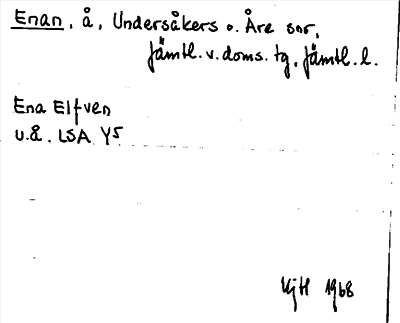 Enan, å, Undersåkers o. Åre snr,
Jämtl. v. doms. tg, Jämtl. l.
Ena Elfven
u.å. LSA Y5
HjH 1968